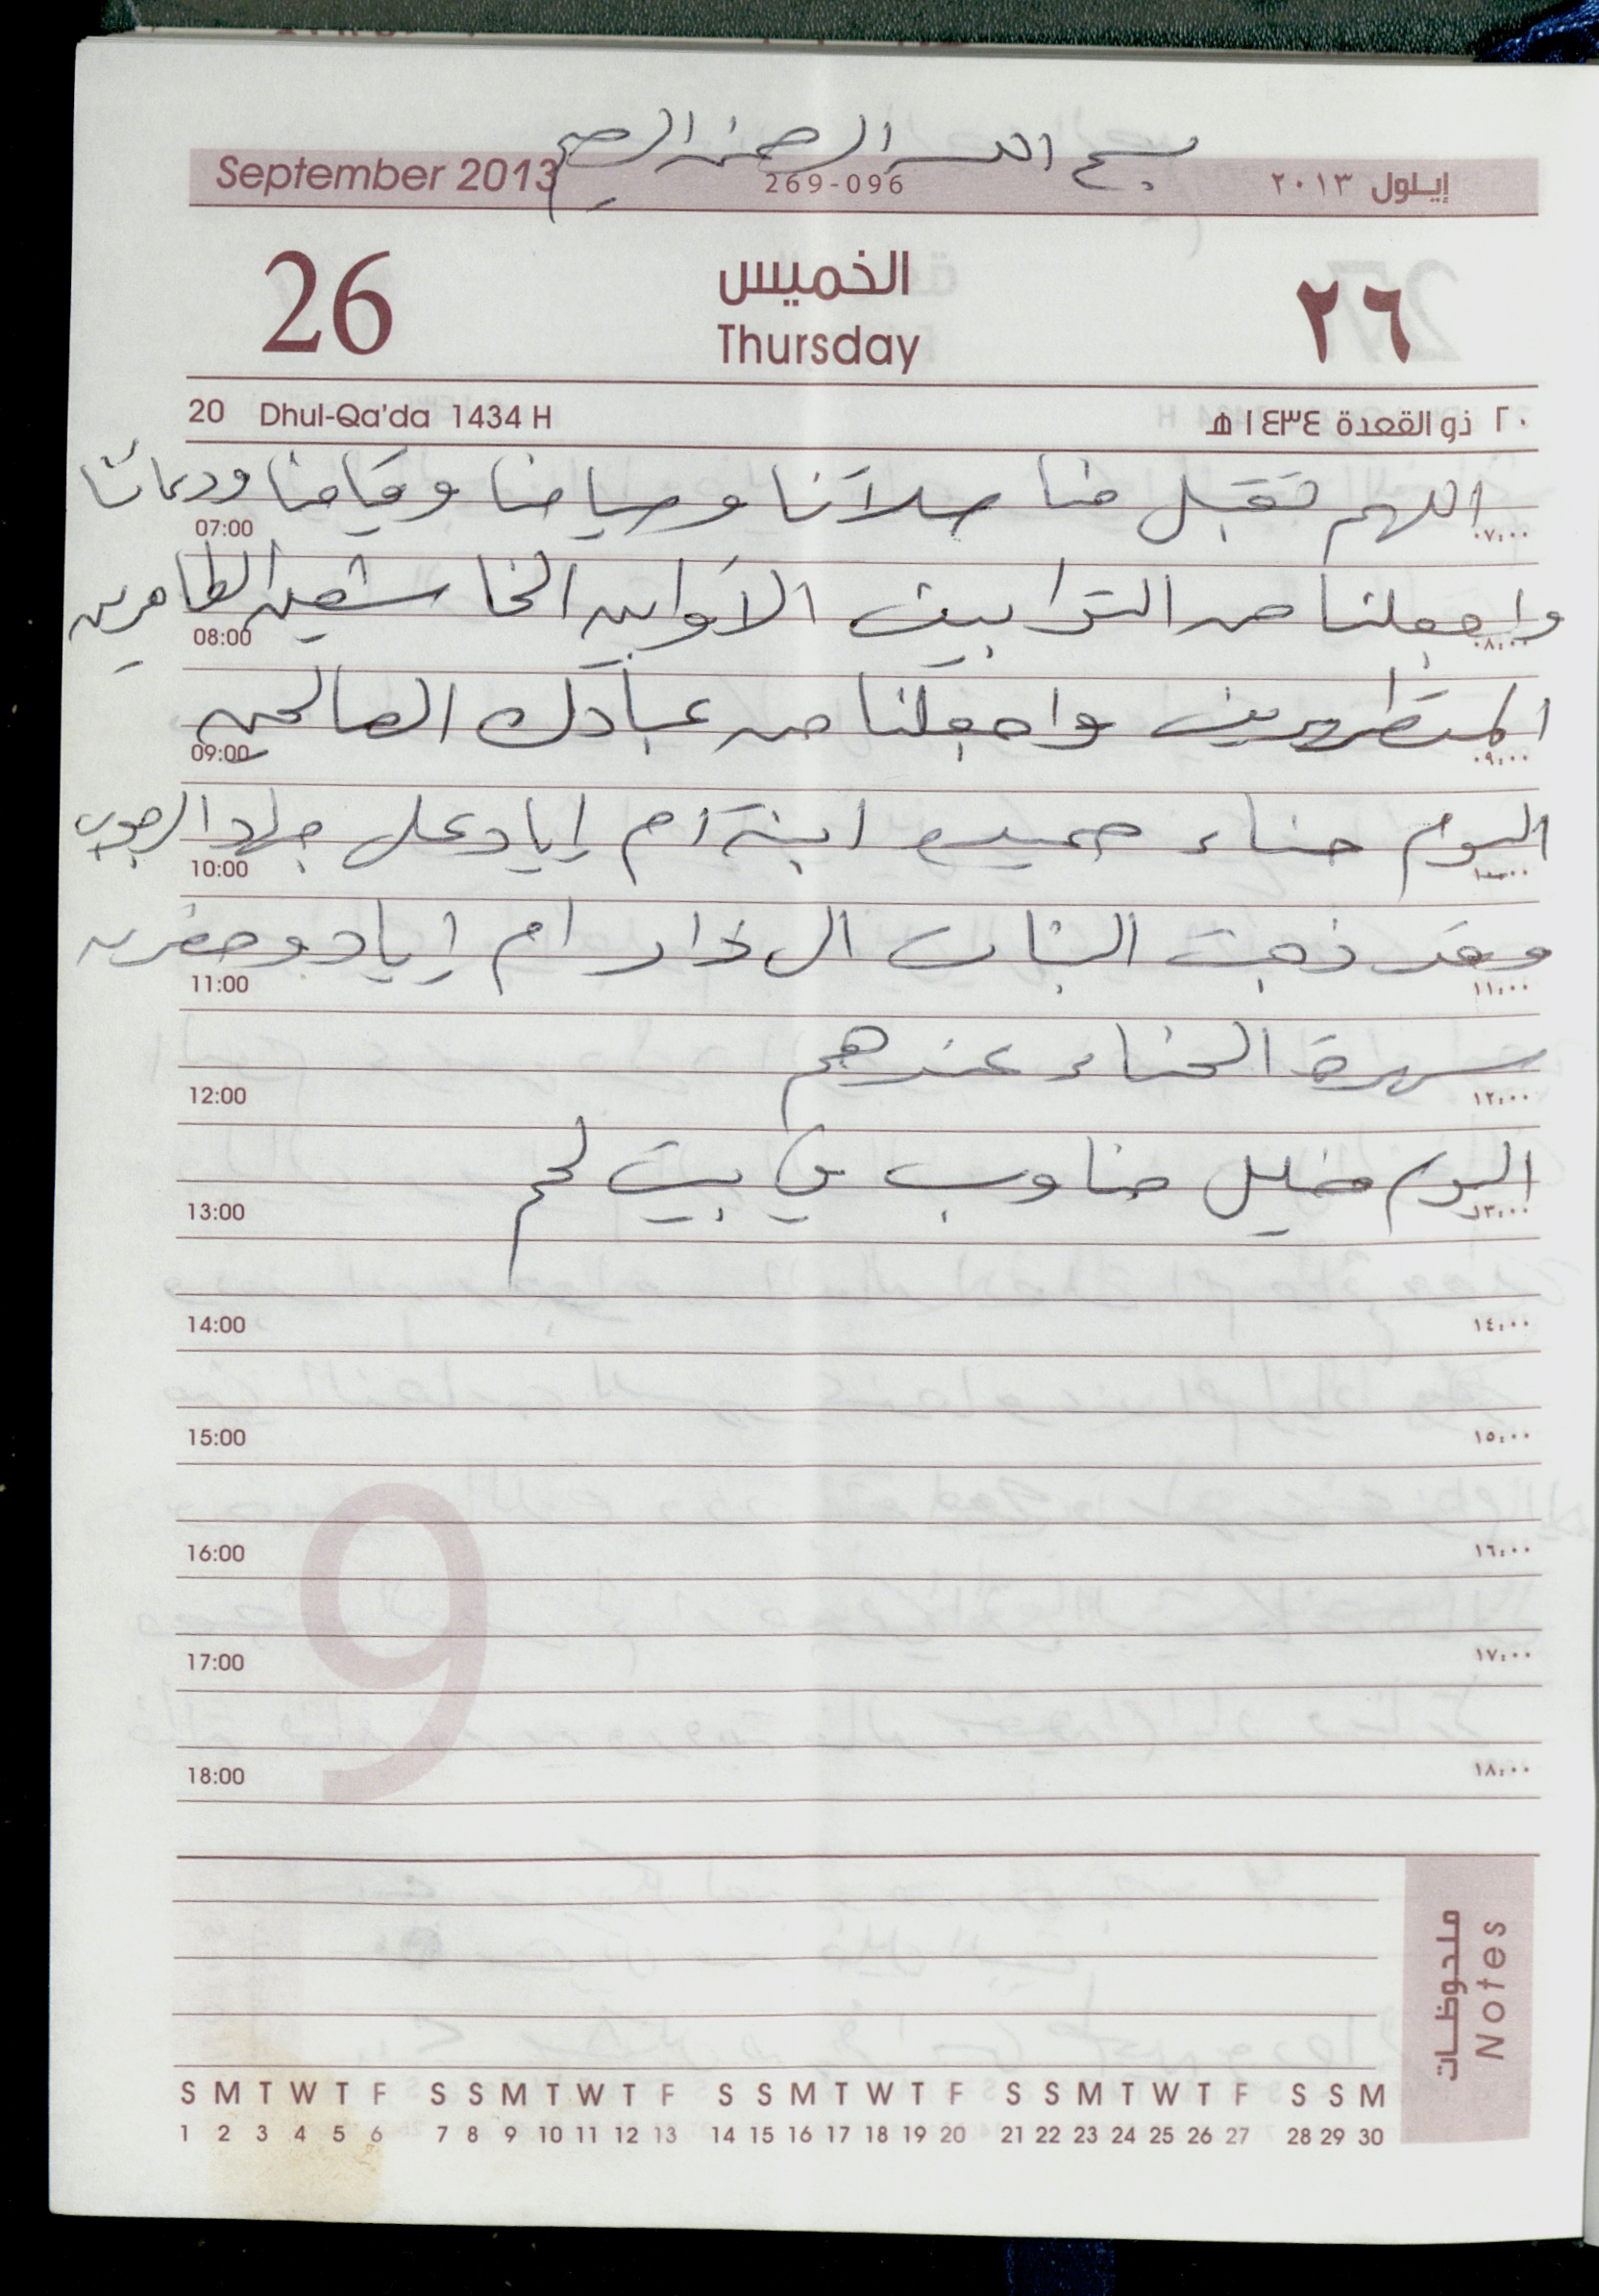 بسم الله الرحمن الرحيم
September 2013 269-096 إيلول ٢٠١٣
26 الخميس ٢٦
Thursday
20 Dhul-Qa'da 1434 H ٢٠ ذو القعدة ١٤٣٤ هـ
اللهم تقبل منا صلاتنا وصيامنا وقيامنا ودعائنا
07:00 ٠٧:٠٠
واجعلنا من التوابين الأوابين الخاشعين الطاهرين
08:00 ٠٨:٠٠
المتطهرين واجعلنا من عبادك الصالحين
09:00 ٠٩:٠٠
اليوم حناء ابنة ام إياد على
10:00 ١٠:٠٠
وقد ذهبت البنات الى دار ام إياد وحضرن
11:00 ١١:٠٠
سهرة الحناء عندهم
12:00 ١٢:٠٠
اليوم خليل مناوب في بيت لحم
13:00 ١٣:٠٠
14:00 ١٤:٠٠
15:00 ١٥:٠٠
16:00 ١٦:٠٠
17:00 ١٧:٠٠
18:00 ١٨:٠٠
9
ملحوظات
Notes
S M T W T F S S M T W T F S S M T W T F S S M T W T F S S M
1 2 3 4 5 6 7 8 9 10 11 12 13 14 15 16 17 18 19 20 21 22 23 24 25 26 27 28 29 30